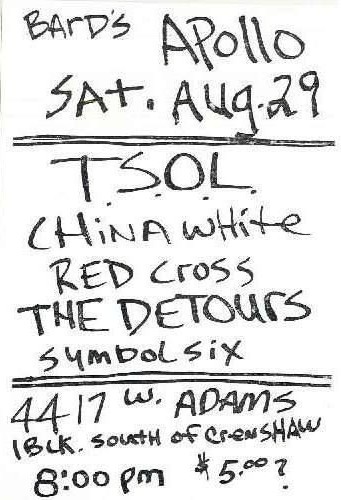 BARD'S APOllO
SAT. AUg. 29
T.S.O.L.
CHiNA WHite
RED Cross
THE DETOURS
SYMBOL SIX
4417 W. ADAMS
1 BLK. SOUTH of CRENSHAW
8:00 pm $5.00?